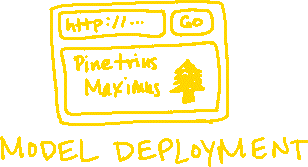 http://...
Go
Pinetrius
Maximus
MODEL DEPLOYMENT